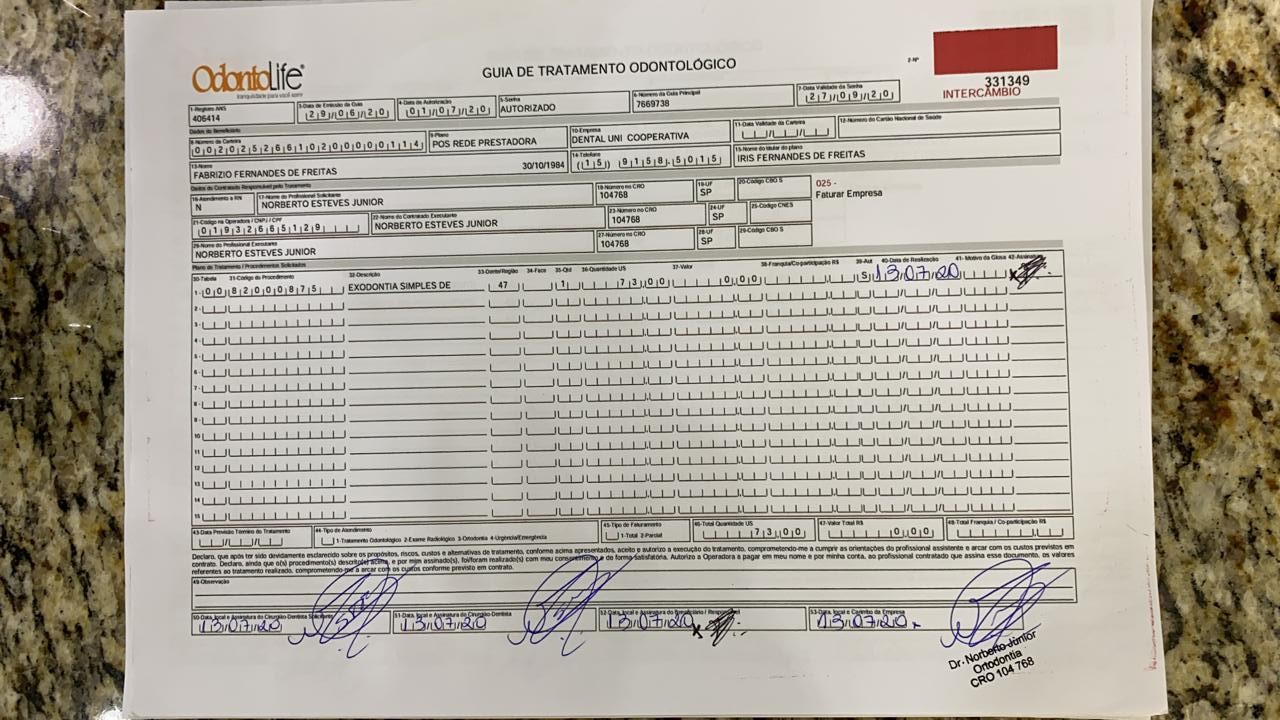 OdontoLife®
tranquilidade para você sorrir
GUIA DE TRATAMENTO ODONTOLÓGICO
2-Nº
331349
INTERCÂMBIO
1-Registro ANS
406414
3-Data de Emissão da Guia
29/06/20
4-Data de Autorização
01/07/20
5-Senha
AUTORIZADO
6-Número da Guia Principal
7669738
7-Data Validade da Senha
27/09/20
Dados do Beneficiário
8-Número da Carteira
00202526610200000114
9-Plano
POS REDE PRESTADORA
10-Empresa
DENTAL UNI COOPERATIVA
11-Data Validade da Carteira
12-Número do Cartão Nacional de Saúde
13-Nome
FABRIZIO FERNANDES DE FREITAS 30/10/1984
14-Telefone
(15) 9158-5015
15-Nome do titular do plano
IRIS FERNANDES DE FREITAS
Dados do Contratado Responsável pelo Tratamento
16-Atendimento a RN
N
17-Nome do Profissional Solicitante
NORBERTO ESTEVES JUNIOR
18-Número no CRO
104768
19-UF
SP
20-Código CBO S
025 -
Faturar Empresa
21-Código na Operadora / CNPJ / CPF
01932665129
22-Nome do Contratado Executante
NORBERTO ESTEVES JUNIOR
23-Número no CRO
104768
24-UF
SP
25-Código CNES
26-Nome do Profissional Executante
NORBERTO ESTEVES JUNIOR
27-Número no CRO
104768
28-UF
SP
29-Código CBO S
Plano de Tratamento / Procedimentos Solicitados
30-Tabela 31-Código do Procedimento 32-Descrição 33-Dente/Região 34-Face 35-Qtd 36-Quantidade US 37-Valor 38-Franquia/Co-participação R$ 39-Aut 40-Data de Realização 41-Motivo da Glosa 42-Assinatura
1- 00 82000875 EXODONTIA SIMPLES DE 47 1 73,00 0,00 S 13/07/20
2-
3-
4-
5-
6-
7-
8-
9-
10
11
12
13
14
15
43-Data Previsão Término do Tratamento
44-Tipo de Atendimento
1-Tratamento Odontológico 2-Exame Radiológico 3-Ortodontia 4-Urgência/Emergência
45-Tipo de Faturamento
1-Total 2-Parcial
46-Total Quantidade US
73,00
47-Valor Total R$
0,00
48-Total Franquia / Co-participação R$
Declaro, que após ter sido devidamente esclarecido sobre os propósitos, riscos, custos e alternativas de tratamento, conforme acima apresentados, aceito e autorizo a execução do tratamento, comprometendo-me a cumprir as orientações do profissional assistente e arcar com os custos previstos em
contrato. Declaro, ainda que o(s) procedimento(s) descrito(s) acima, e por mim assinado(s), foi/foram realizado(s) com meu consentimento e de forma satisfatória. Autorizo a Operadora a pagar em meu nome e por minha conta, ao profissional contratado que assina esse documento, os valores
referentes ao tratamento realizado, comprometendo-me a arcar com os custos conforme previsto em contrato.
49-Observação
50-Data, local e Assinatura do Cirurgião-Dentista Solicitante
13/07/20
51-Data, local e Assinatura do Cirurgião-Dentista
13/07/20
52-Data, local e Assinatura do Beneficiário / Responsável
13/07/20
53-Data, local e Carimbo da Empresa
13/07/20
Dr. Norberto Júnior
Ortodontia
CRO 104 768